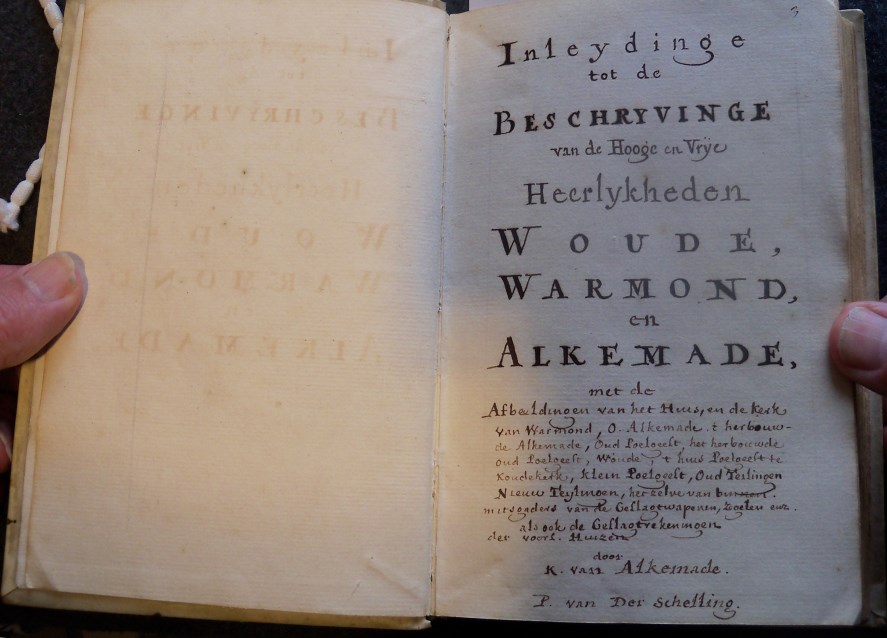 3
Inleydinge
tot de
BESCHRYVINGE
van de Hooge en Vrÿe
Heerlykheden
WOUDE,
WARMOND,
en
ALKEMADE,
met de
Afbeeldingen van het Huis, en de Kerk
van Warmond, O. Alkemade. t herbouw-
de Alkemade, Oud Poelgeest, het herbouwde
oud Poelgeest, Woude, 't huis Poelgeest te
Koudekerk, klein Poelgeest, Oud Teilingen
Nieuw Teylingen, het zelve van binnen.
mitsgaders van de Geslagtwapenen, zegelen enz.
als ook de Geslagtrekeningen
der voors. Huizen
door
K. van Alkemade.
P. van Der Schelling.